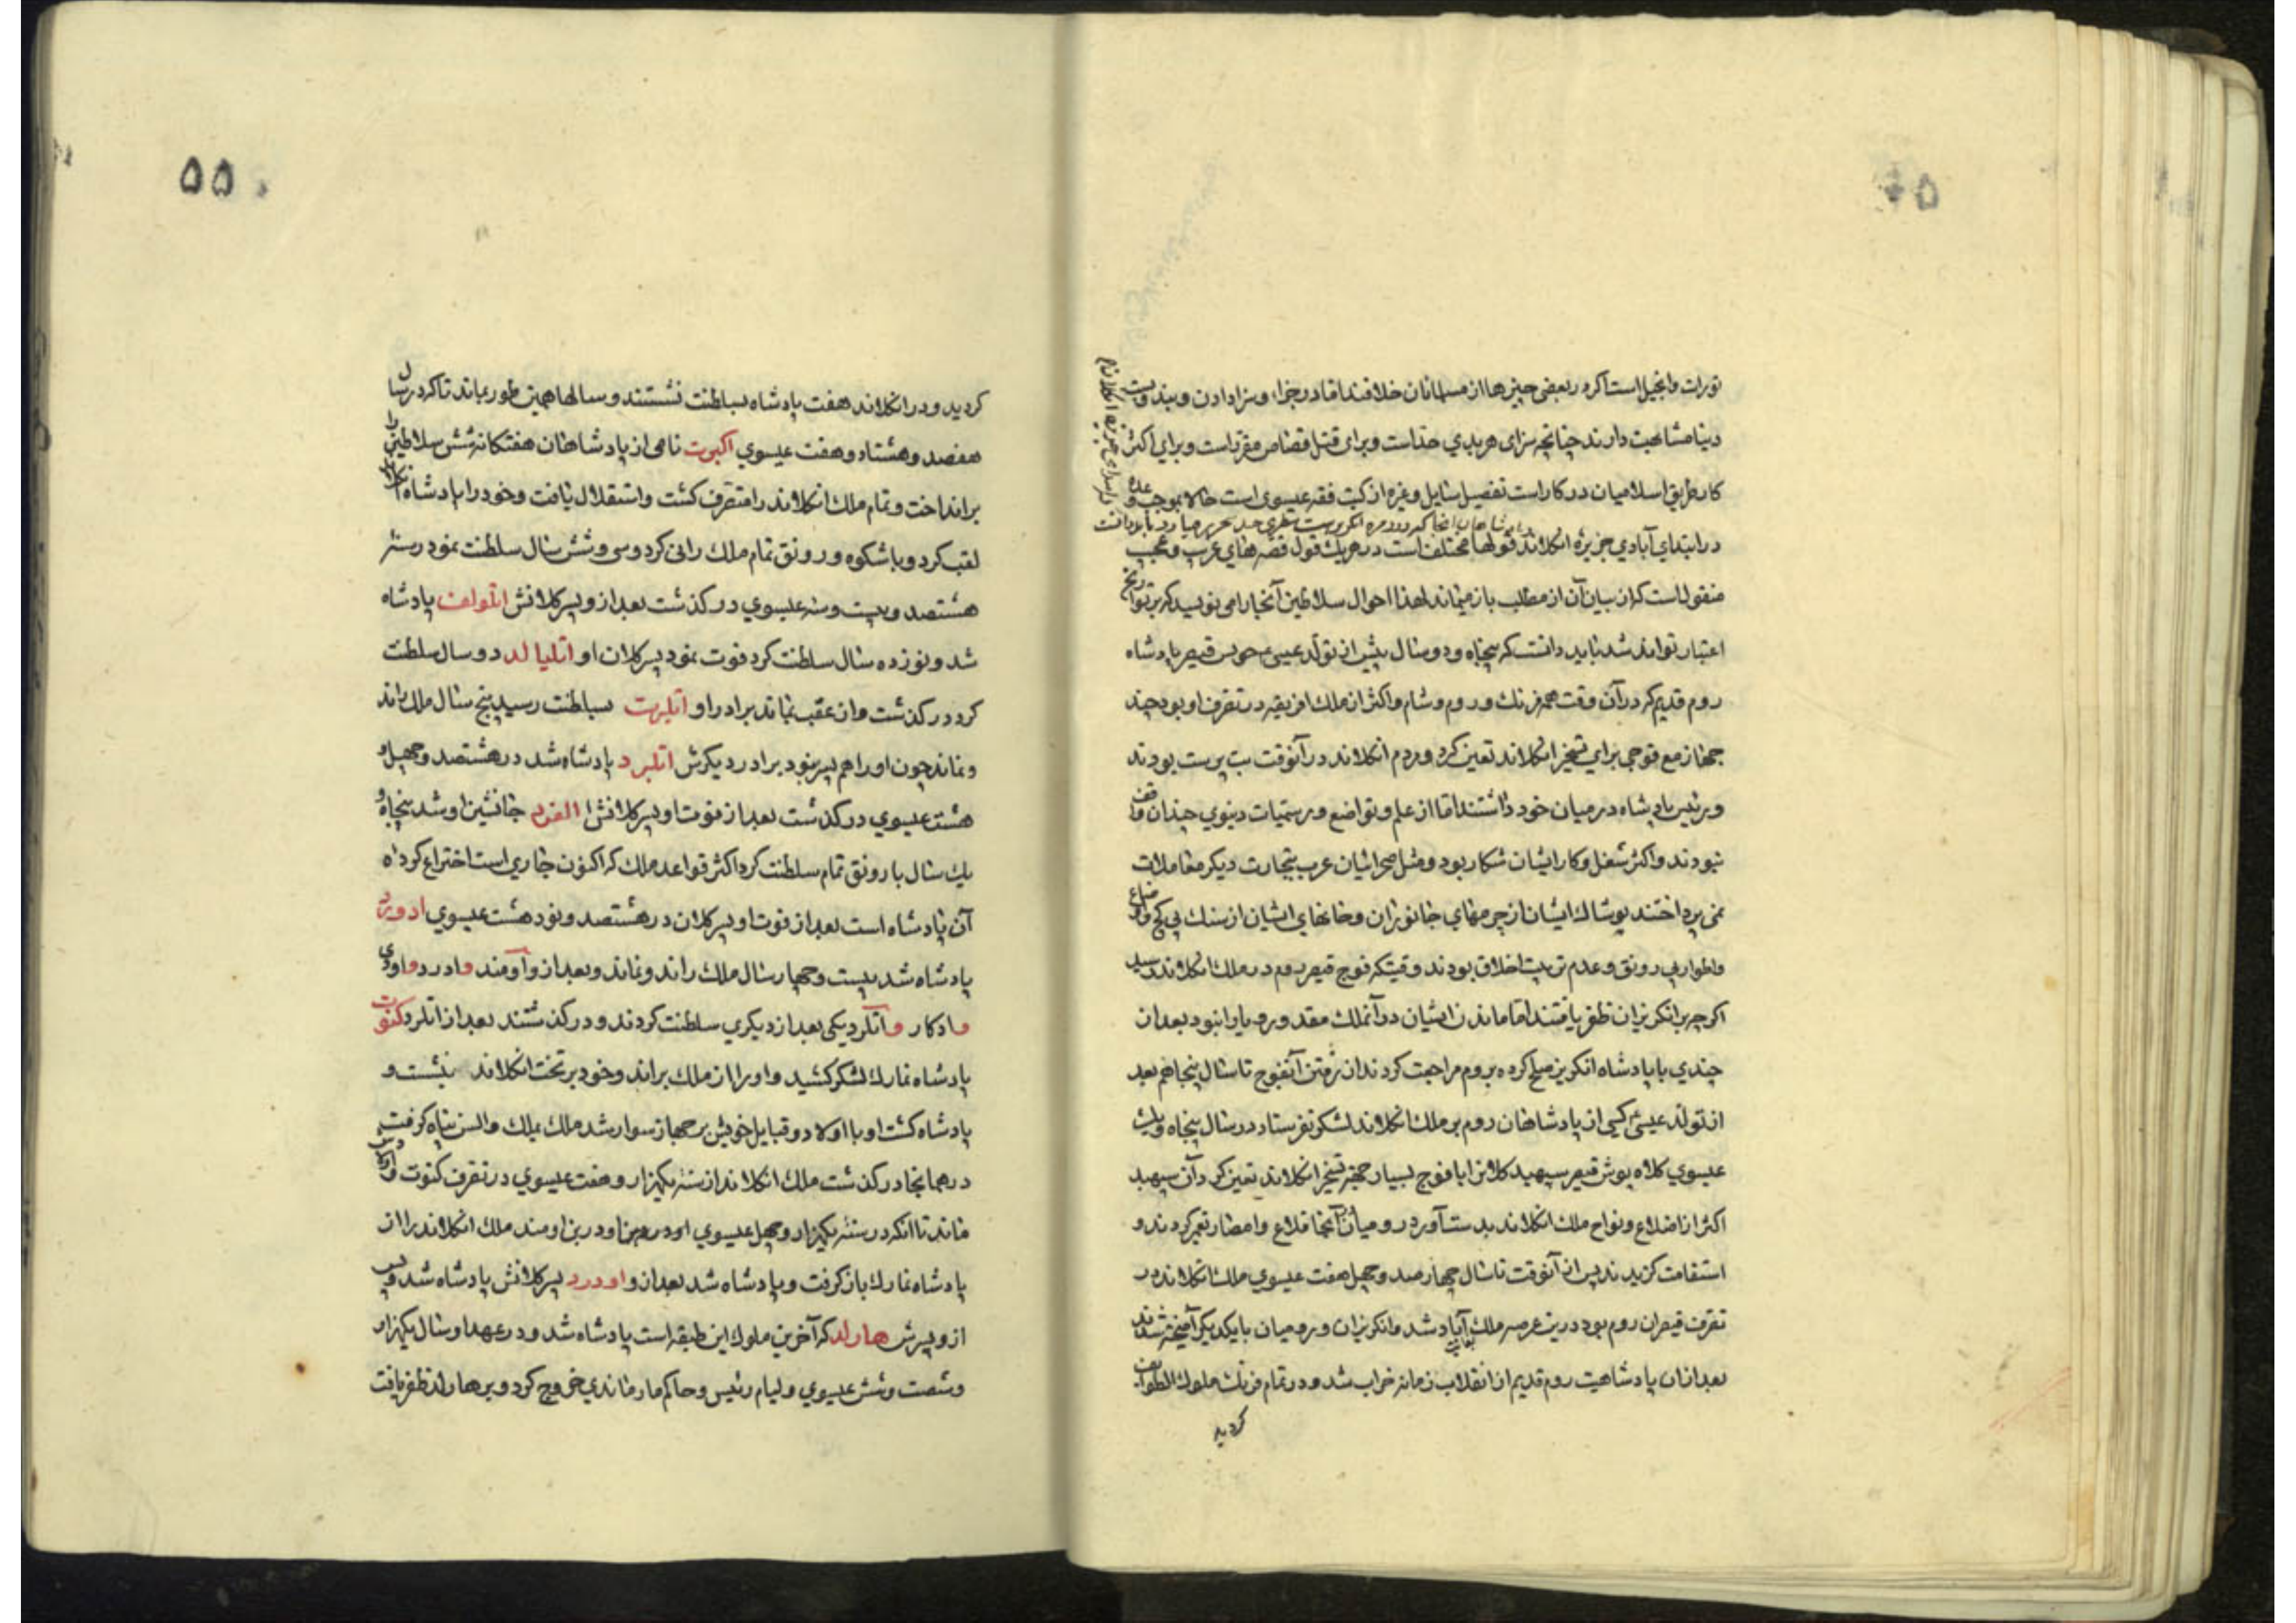 تورات وانجیل است اکر در بعضی چیزها از مسلمانان خلافند اما در جزا و سزا دادن و بندوبست
دینا مشابهت دارند چنانچه سزای هر بدی حد است و برای قتل قصاص مقرر است و برای اکثر
کار طریق اسلامیان در کار است تفصیل مسایل و غیره از کتب فقه عیسوی است حالا بموجب وعده
در ابتدای آبادی جزیره انکلاند قولها مختلف است در هر یک قول قصه های غریب و عجیب
منقول است که از بیان آن از مطلب باز میماند لهذا احوال سلاطین آنجا را می نویسد که بر تواریخ
اعتبار تواند شد باید دانست که پنجاه و دو سال پیش از تولد عیسی قیصر پادشاه
روم قدیم که در آن وقت همه فرنک و روم و شام و اکثر از ملک افریقیه در تصرف او بود چند
جهاز مع فوجی برای تسخیر انکلاند تعین کرد و مردم انکلاند در آنوقت بت پرست بودند
و رئیس پادشاه در میان خود داشتند اما از علم و تواضع و رسمیات دنیوی چندان واقف
نبودند و اکثر شغل و کار ایشان شکار بود و مثل صحرائیان عرب بتجارت دیکر معاملات
نمی پرداختند پوشاک ایشان از چرمهای جانوران و خانهای ایشان از سنک بی کچ
و اطوار بی رونق و عدم تربیت اخلاق بودند وقتیکه فوج قیصر روم در ملک انکلاند رسید
اکرچه بر انکریزان ظفر یافتند اما ماندن ایشان در آنملک مقدور و یارا نبود بعد از
چندی با پادشاه انکریز صلح کرده بروم مراجعت کردند از رفتن آنفوج تا سال پنجاهم بعد
از تولد عیسی کسی از پادشاهان روم بر ملک انکلاند لشکر نفرستاد در سال پنجاه و یک
عیسوی قیصر سپهبد کلان را با فوج بسیار جهة تسخیر انکلاند تعین کرد آن سپهبد
اکثر از اضلاع و نواح ملک انکلاند بدست آورد رومیان آنجا قلاع و امصار تعمیر کردند و
استقامت کزیدند پس از آنوقت تا سال چهار صد و چهل هفت عیسوی ملک انکلاند در
تصرف قیصران روم بود درین عرصه ملک آباد شد و انکریزان و رومیان بایکدیکر آمیخته شدند
بعد ازان پادشاهیت روم قدیم از انقلاب زمانه خراب شد و در تمام فرنک ملوک الطوایف
کردید
۵۵
کردید و در انکلاند هفت پادشاه بسلطنت نشستند و سالها همین طور بماند تا که در سال
هفصد و هشتاد و هفت عیسوی اکبرت نامی از پادشاهان هفتکانه شش سلاطین را
بر انداخت و تمام ملک انکلاند را متصرف کشت و استقلال یافت و خود را پادشاه انکلاند
لقب کرد و با شکوه و رونق تمام ملک رانی کرد و سی و شش سال سلطنت نمود در سنه
هشتصد و بیست و سه عیسوی در کذشت بعد از و پسر کلانش اتلولف پادشاه
شد و نوزده سال سلطنت کرد فوت نمود پسر کلان او اتلیالد دو سال سلطنت
کرد در کذشت و از عقب نماند برادر او اتلبرت بسلطنت رسید پنج سال ملک راند
و نماند چون او را هم پسر نبود برادر دیکرش اتلبرد پادشاه شد در هشتصد و چهل و
هشت عیسوی در کذشت بعد از فوت او پسر کلانش الفرد جانشین او شد پنجاه و
یک سال با رونق تمام سلطنت کرد اکثر قواعد ملک که اکنون جاری است اختراع کرده
آن پادشاه است بعد از فوت او پسر کلان در هشتصد و نود هشت عیسوی ادورد
پادشاه شد بیست و چهار سال ملک راند و نماند و بعد از و آدمند وادرد
وادکار و اتلرد یکی بعد از دیکری سلطنت کردند و در کذشتند بعد از اتلرد کنوت
پادشاه نمارک لشکر کشید و او را از ملک براند و خود بر تخت انکلاند بنشست و
پادشاه کشت او با اولاد و قبایل خویش بر جهاز سوار شد ملک بملک والس پناه کرفت
در همانجا در کذشت ملک انکلاند از سنه یکهزار و هفت عیسوی در تصرف کنوت و اولادش
ماند تا آنکه در سنه یکهزار و چهل عیسوی ملک انکلاند را از
پادشاه نمارک باز کرفت و پادشاه شد بعد از و اودرد پسر کلانش پادشاه شد و پس
از و پسرش هارلد که آخرین ملوک این طبقه است پادشاه شد و در عهد او سال یکهزار
و شصت و شش عیسوی ولیام رئیس و حاکم مارماندی خروج کرد و بر هارلد ظفر یافت